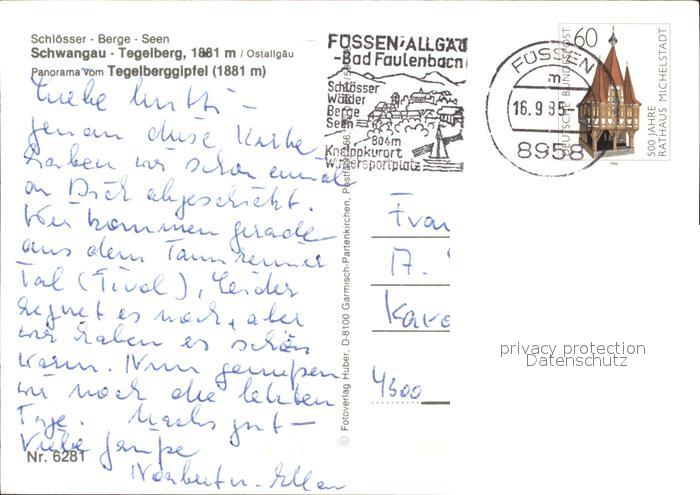 Schlösser - Berge - Seen
Schwangau - Tegelberg, 1881 m / Ostallgäu
Panorama vom Tegelberggipfel (1881 m)
Liebe Mutti –
genau diese Karte
haben wir schon einmal
an Dich abgeschickt.
Wir kommen gerade
aus dem Tannheimer
Tal (Tirol), leider
regnet es noch, aber
wir haben es schön
warm. Nun genießen
wir noch die letzten
Tage. Machs gut –
Liebe Grüße
Norbert u. Ellen
Nr. 6281
FÜSSEN/ALLGÄU
-Bad Faulenbach
Schlösser
Wälder
Berge
Seen
804m
Kneippkurort
Wintersportplatz
FÜSSEN
m
16.9.85-
8958
60
DEUTSCHE BUNDESPOST
500 JAHRE
RATHAUS MICHELSTADT
© Fotoverlag Huber, D-8100 Garmisch-Partenkirchen, Postfach
Frau
17.
4300
privacy protection
Datenschutz